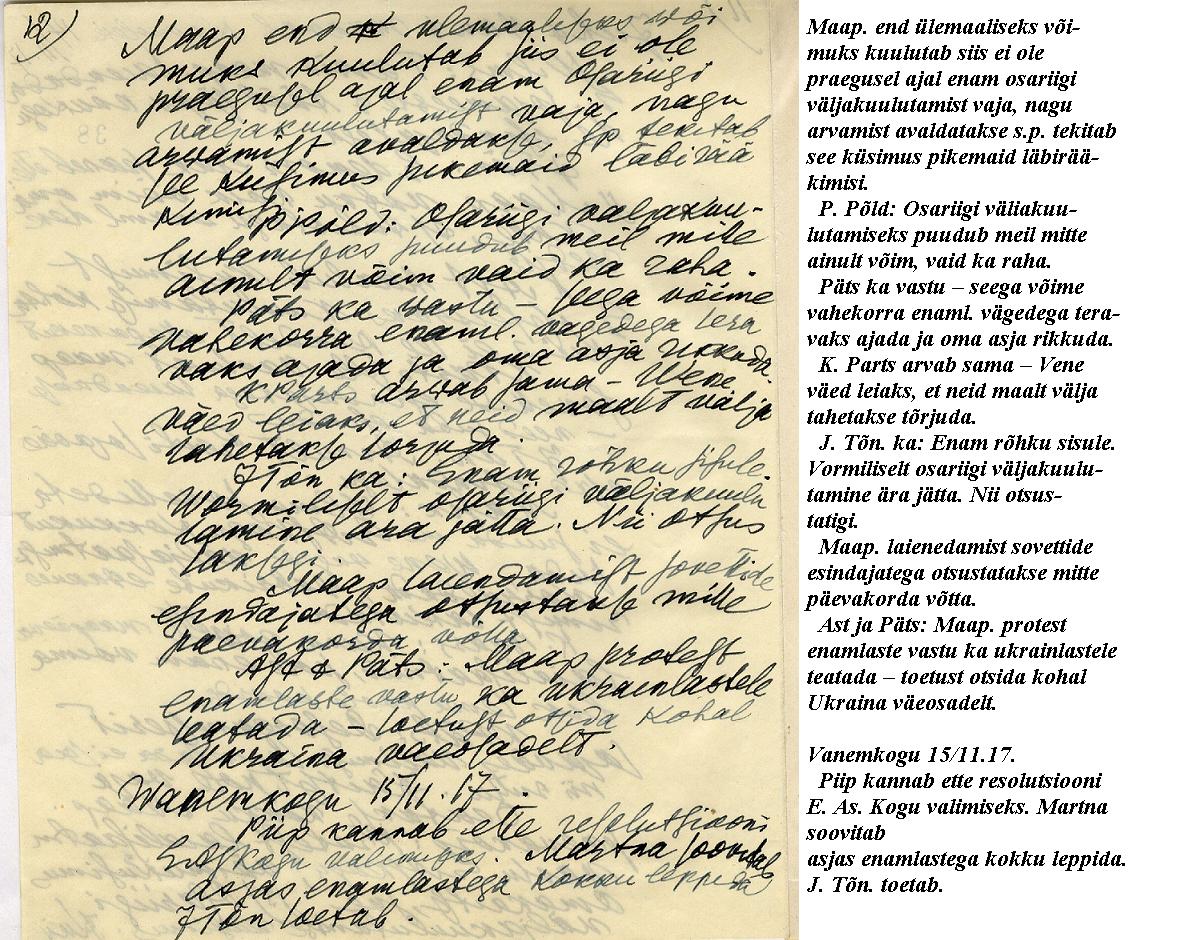 12)
Maap end ülemaaliseks wõi
muks kuulutab siis ei ole
praegusel ajal enam Osariigi
väljakuulutamist vaja, nagu
arwamist avaldakse, sp tekitab
see küsimus pikemaid läbirää
kimisi
P Põld: Osariigi väljakuu-
lutamiseks puudub meil mitte
ainult võim vaid ka raha.
Päts ka vastu – seega võime
vahekorra enaml. vägedega tera
vaks ajada ja oma asja rikkuda.
K Parts arwab sama – Wene
väed leiaks, et neid maalt välja
tahetakse tõrjuda.
J Tõn ka: Enam rõhku sisule.
Wormiliselt osariigi väljakuulu
tamine ära jätta. Nii otsus
tatigi.
Maap laiendamist sovettide
esindajatega otsustakse mitte
päevakorda võtta
Ast & Päts: Maap protest
enamlaste vastu ka ukrainlastele
teatada – toetust otsida kohal
Ukraina väeosadelt.
Wanemkogu 15/11.17.
Piip kannab ette resolutsiooni
E As Kogu valimiseks. Martna soovitab
asjas enamlastega kokku leppida
J Tõn toetab.
Maap. end ülemaaliseks või-
muks kuulutab siis ei ole
praegusel ajal enam osariigi
väljakuulutamist vaja, nagu
arvamist avaldatakse s.p. tekitab
see küsimus pikemaid läbirää-
kimisi.
P. Põld: Osariigi väliakuu-
lutamiseks puudub meil mitte
ainult võim, vaid ka raha.
Päts ka vastu – seega võime
vahekorra enaml. vägedega tera-
vaks ajada ja oma asja rikkuda.
K. Parts arvab sama – Vene
väed leiaks, et neid maalt välja
tahetakse tõrjuda.
J. Tõn. ka: Enam rõhku sisule.
Vormiliselt osariigi väljakuulu-
tamine ära jätta. Nii otsus-
tatigi.
Maap. laienedamist sovettide
esindajatega otsustatakse mitte
päevakorda võtta.
Ast ja Päts: Maap. protest
enamlaste vastu ka ukrainlastele
teatada – toetust otsida kohal
Ukraina väeosadelt.
Vanemkogu 15/11.17.
Piip kannab ette resolutsiooni
E. As. Kogu valimiseks. Martna
soovitab
asjas enamlastega kokku leppida.
J. Tõn. toetab.